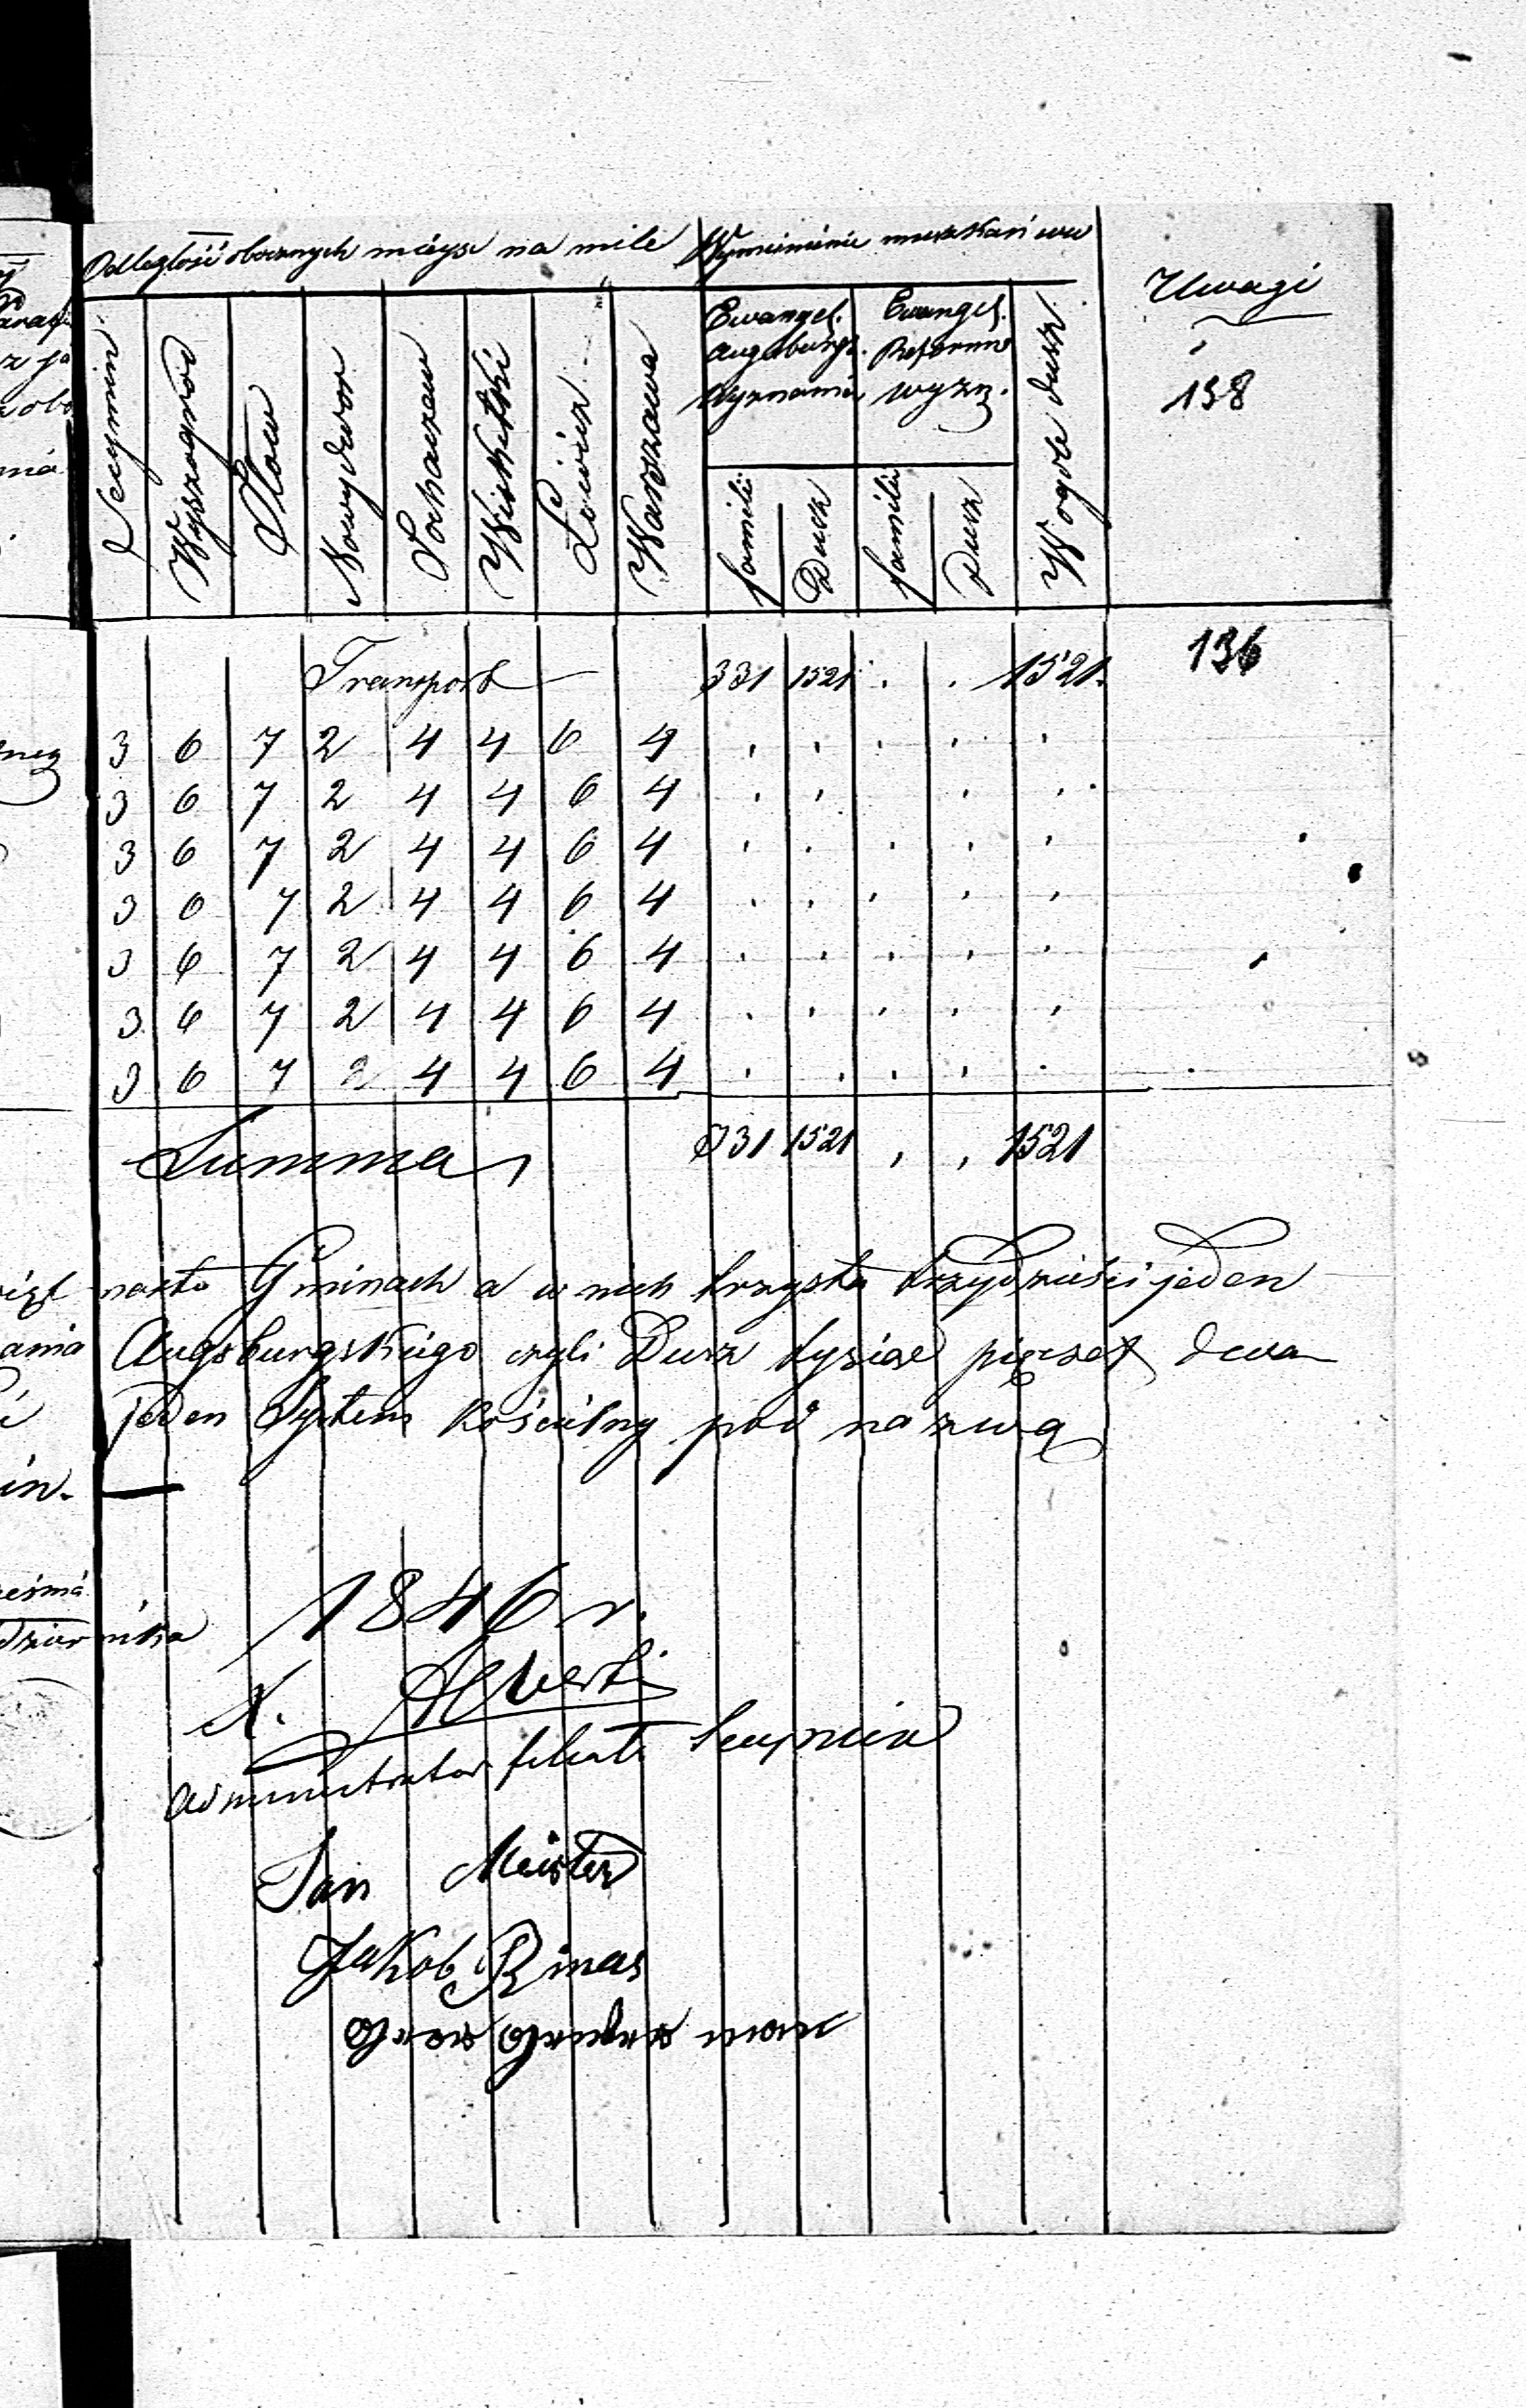 Odległość obocznych mieysc na mile Wymienienie mieszkańców Uwagi
Secymin Wyszogrod Iłow Nowydwor Sochaczew Wiskitki Łowicz Warszawa Ewangel. Augsburgs. Wyznania Ewangel. Reformo wyzn. Wogole dusz
familii Dusz familii Dusz
138
Transport 331 1521 . . 1521. 136
3 6 7 2 4 4 6 4
3 6 7 2 4 4 6 4
3 6 7 2 4 4 6 4
3 6 7 2 4 4 6 4
3 6 7 2 4 4 6 4
3 6 7 2 4 4 6 4
3 6 7 2 4 4 6 4
Summa 331 1521 , , 1521
nasto Gminach a w nich trzysta trzydzieści jeden
Augsburgskiego czyli Dusz tysiąc pięcset dwa
jeden System Kościelny pod nazwą
in. —
1846 r.
X. Alberti
Administrator filiału Secymin
Jan Meister
Jakob Rinas